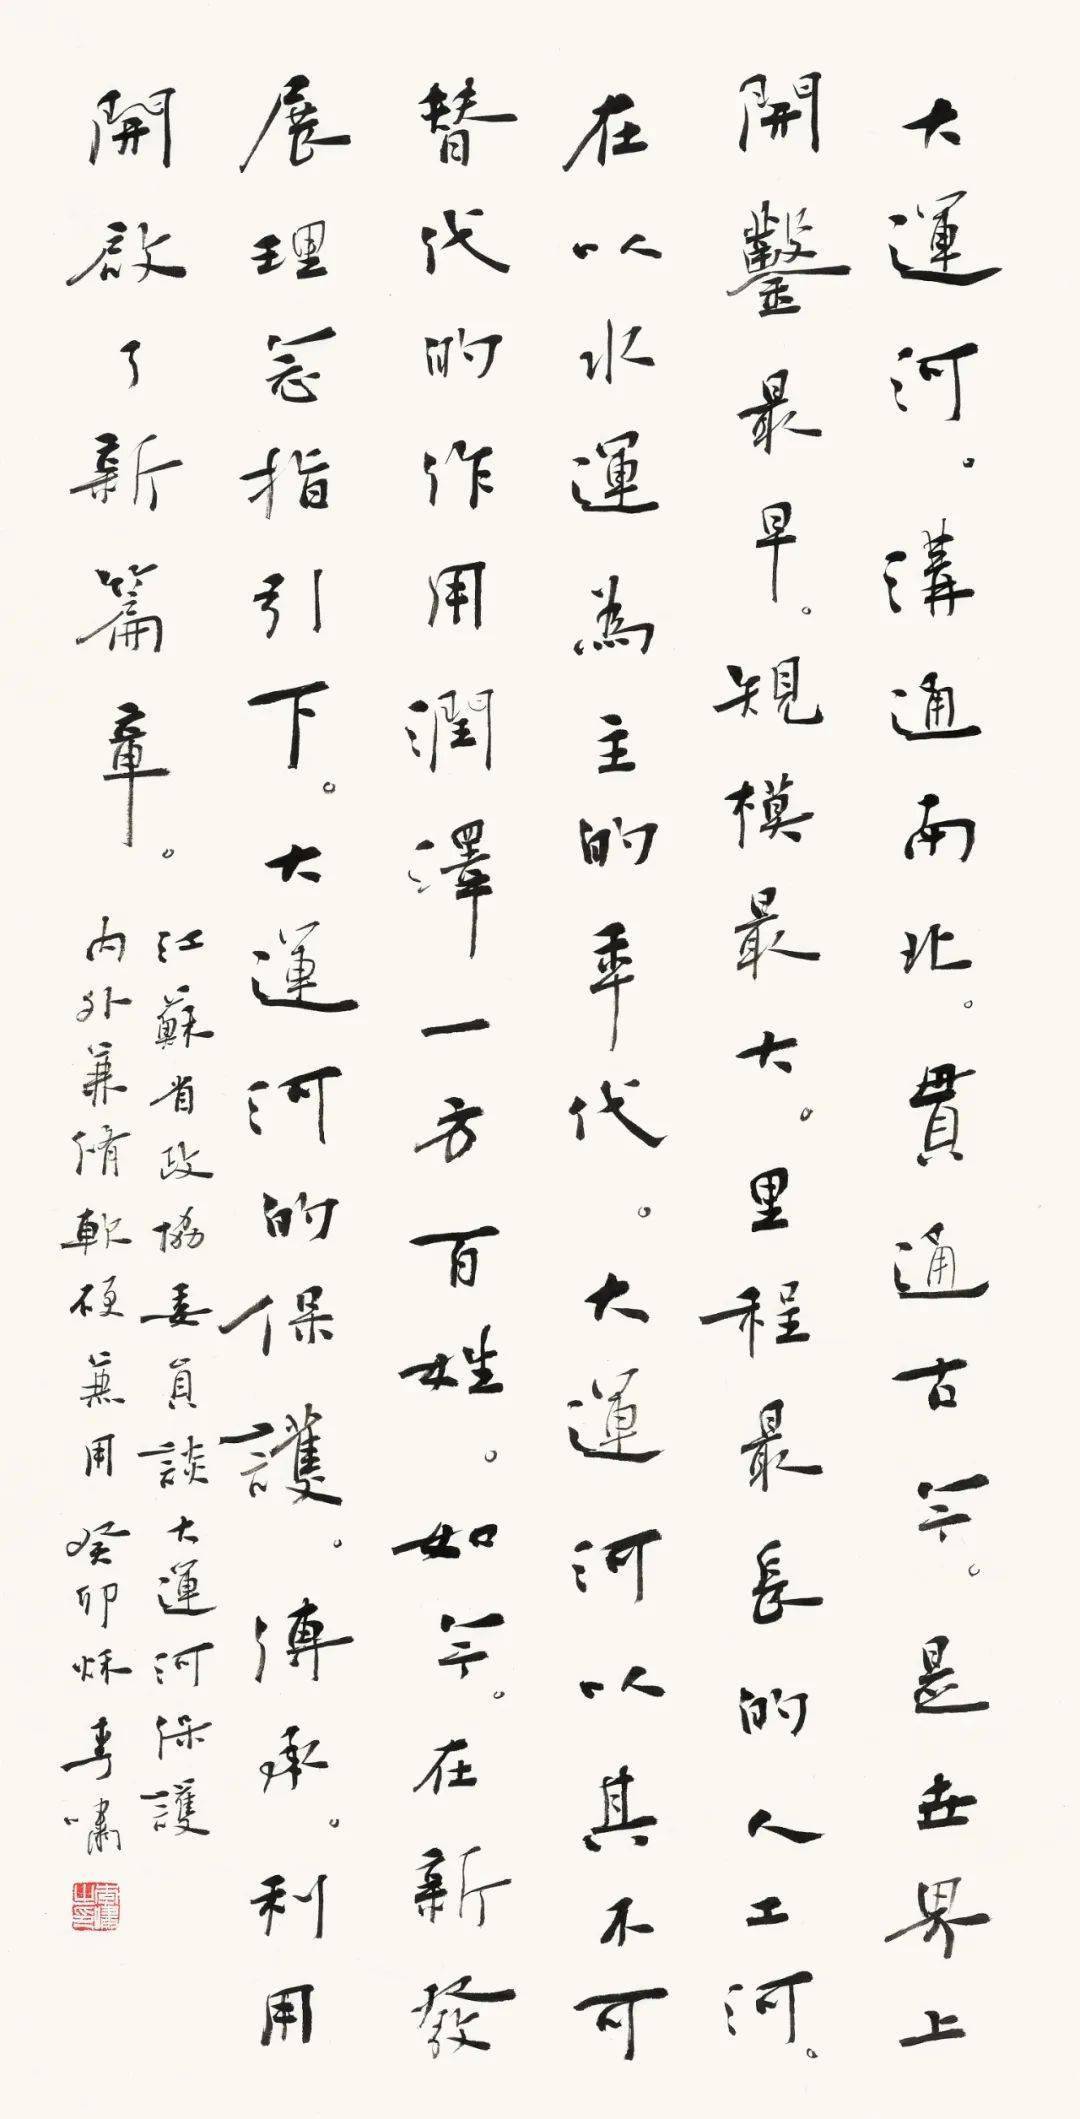 大運河。溝通南北。貫通古今。是世界上
開鑿最早。規模最大。里程最長的人工河。
在以水運為主的年代。大運河以其不可
替代的作用潤澤一方百姓。如今。在新發
展理念指引下。大運河的保護。傳承。利用
開啟了新篇章。
江蘇省政協委員談大運河保護
内外兼脩軟硬兼用癸卯秌李嘯